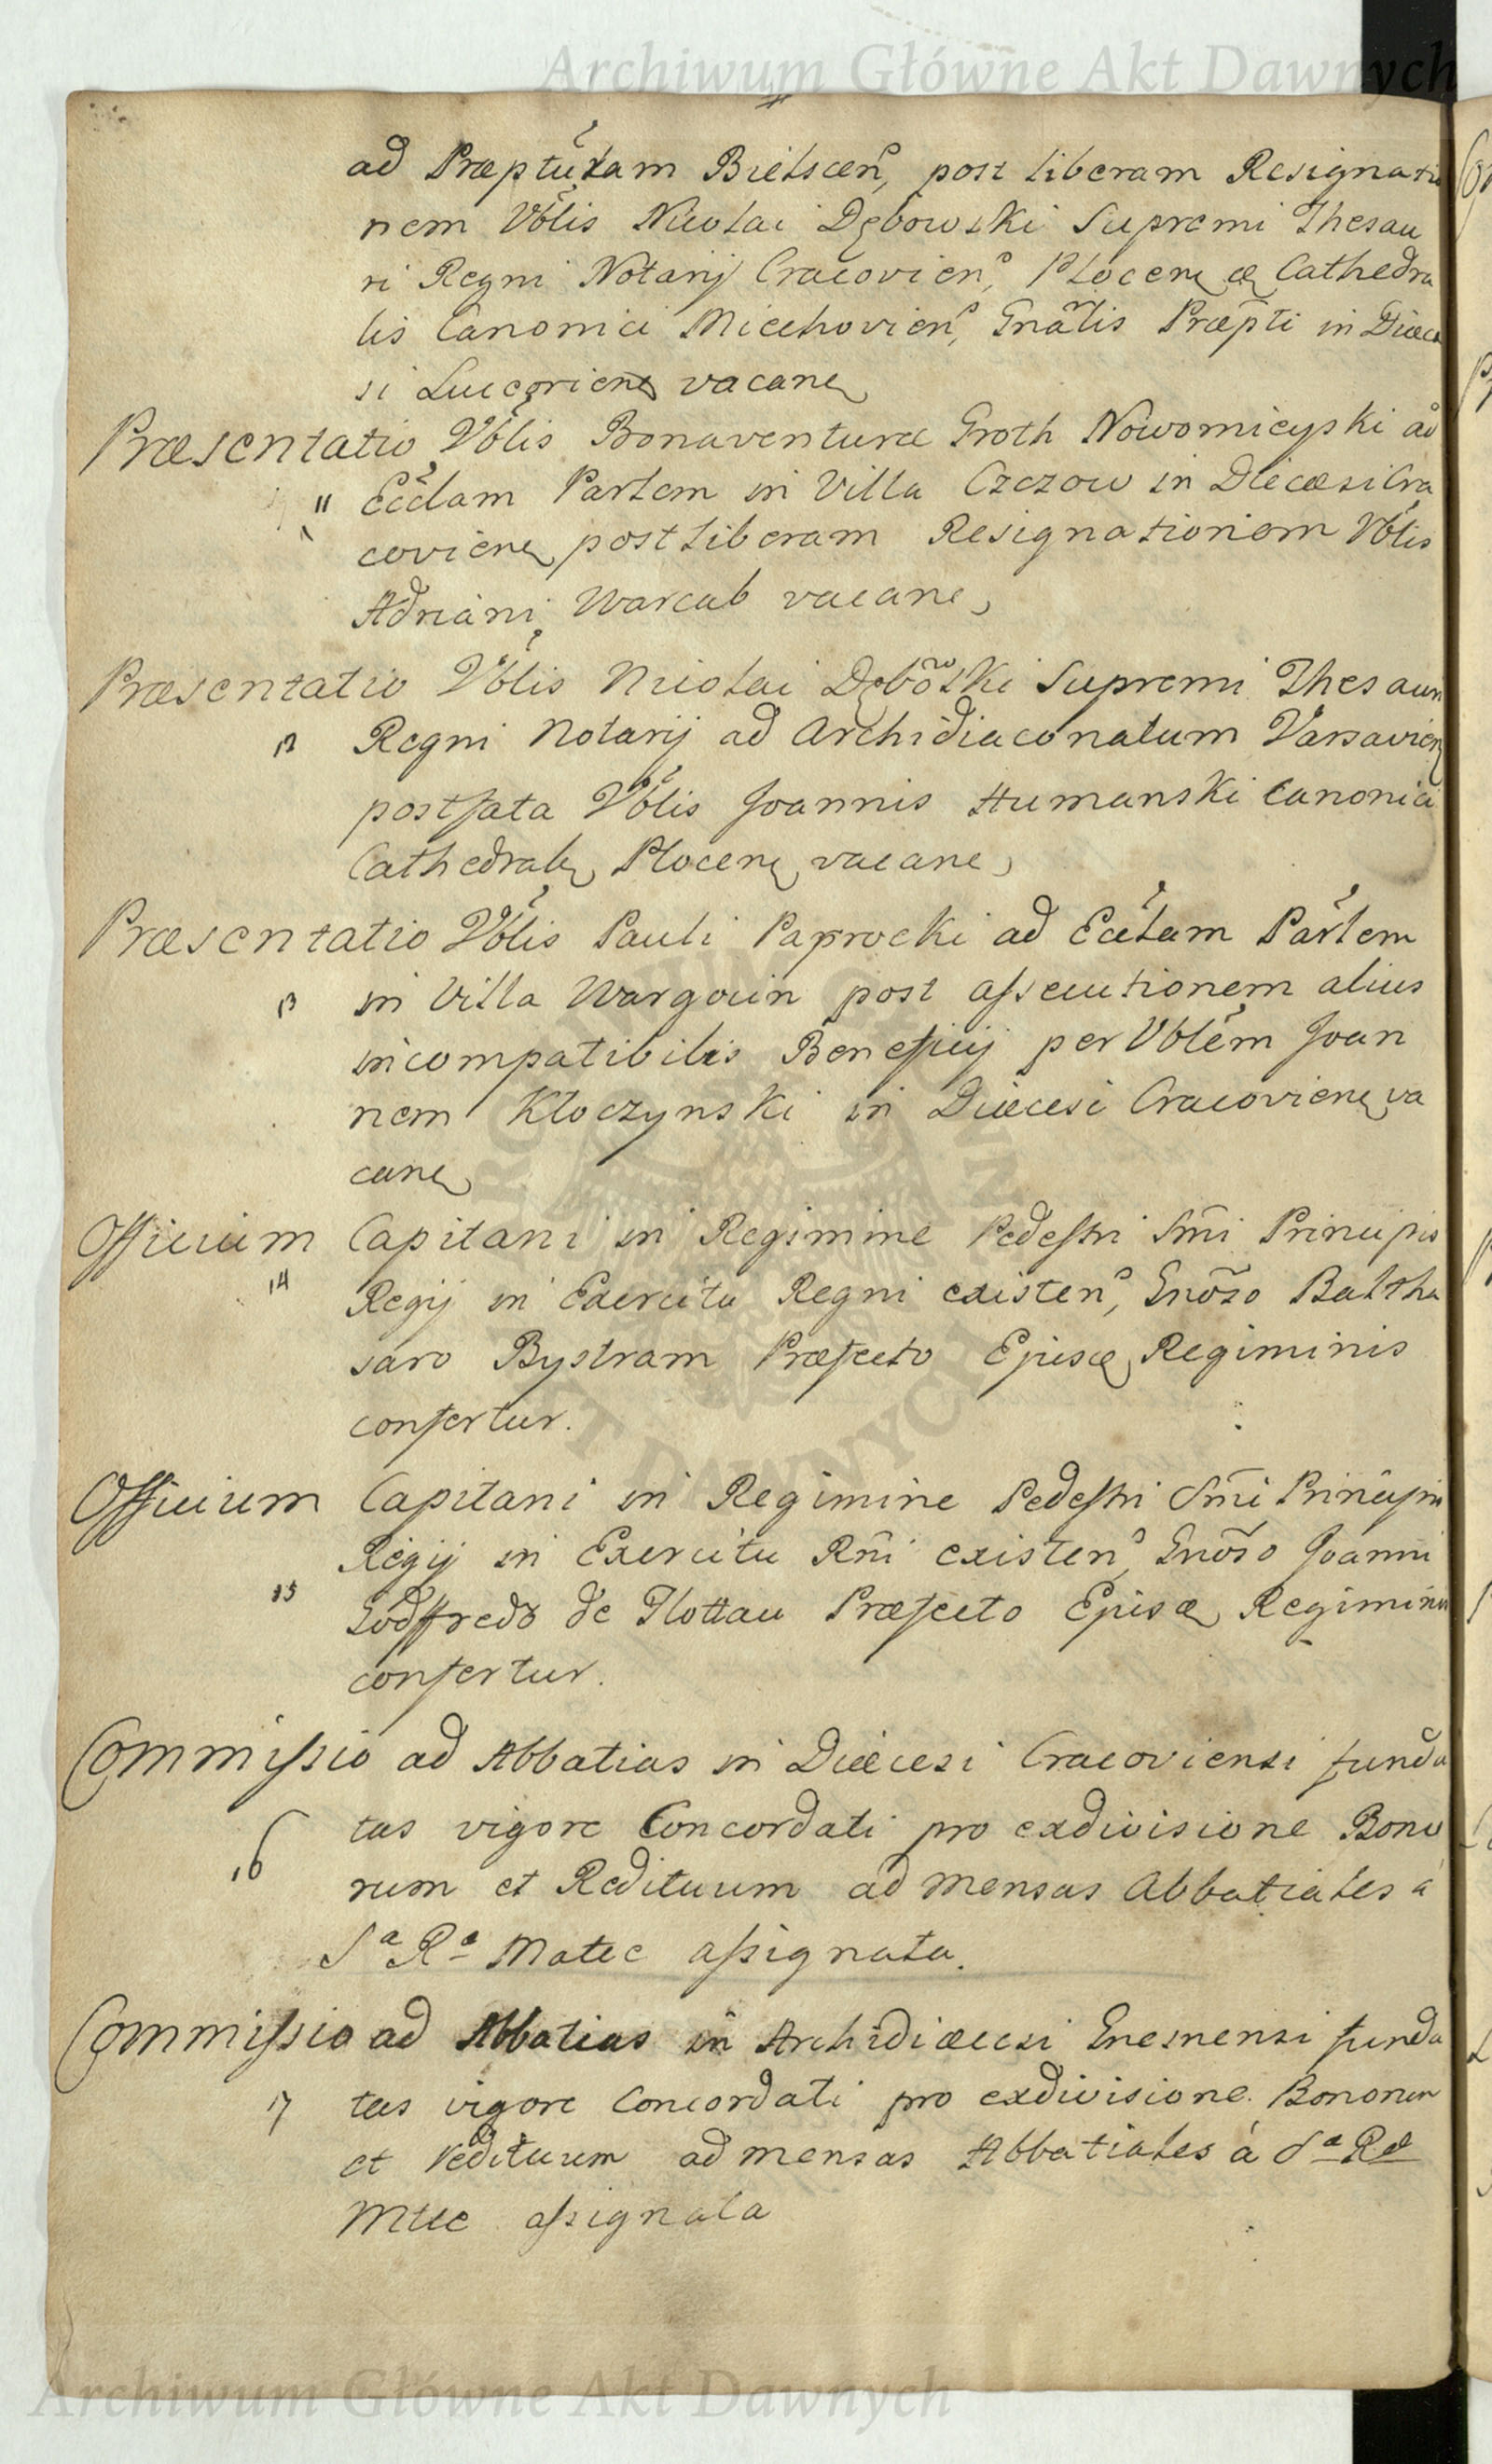 Archiwum Główne Akt Dawnych
ad Præptúram Bielscen, post liberam Resignatio
nem Vblis Nicolai Dębowski Supremi Thesau
ri Regni Notarij Cracovien, Plocen æ Cathedra
lis Canonici Miechovien, Gnalis Præpti in Diæce
si Luceorien vacane
Præsentatio Vblis Bonaventuræ Groth Nowomieyski ad
11 Eccłam Parlem in Villa Czczow in Diæcesi Cra
covien post liberam Resignationem Vblis
Adriani Warcab vacane
Præsentatio Vblis Nicolai Dębowski Supremi Thesauri
12 Regni Notarij ad Archidiaconatum Varsavien
post fata Vblis Joannis Humanski Canonici
Cathedral Plocen vacane
Præsentatio Vblis Pauli Paprocki ad Eccłam Parlem
13 in Villa Wargocin post assecutionem alius
incompatibilis Beneficij per Vblem Joan
nem Kłoczynski in Diæcesi Cracovien va
cane
Officium Capitani in Regimine Pedestri Smi Principis
14 Regij in Exercitu Regni existen, Gnoso Baltha
saro Bystram Præfecto Ejusq Regiminis
confertur.
Officium Capitani in Regimine Pedestri Smi Principis
Regij in Exercitu Rni existen, Gnoso Joanni
15 Godffredo de Flottau Præfecto Ejusq Regiminis
confertur.
Commissio ad Abbatias in Diæcesi Cracoviensi funda
16 tas vigore Concordati pro exdivisione Bono
rum et Redituum ad mensas Abbatiales a
Sa Ra Matte assignata.
Commissio ad Abbatias in Archidiæcesi Gnesnensi funda
17 tas vigore Concordati pro exdivisione Bonorum
et redituum ad mensas Abbatiales á Sa Ra
Mtte assignata
Archiwum Główne Akt Dawnych